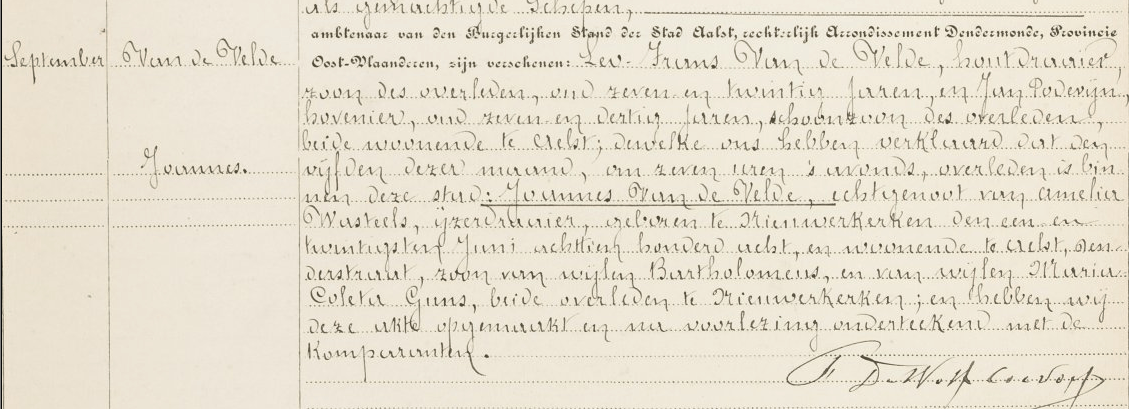 als gemachtigde Schepen,
ambtenaar van den Burgerlijken Stand der Stad Aalst, rechterlijk Arrondissement Dendermonde, Provincie
September
Van de Velde
Oost-Vlaanderen, zijn verschenen: Leo-Frans Van de Velde, houtdraaier,
zoon des overleden, oud zeven-en twintig jaren, en Jan Poderijn,
hovenier, oud zeven en dertig jaren, schoonzoon des overleden,
beide woonende te Aelst; dewelke ons hebben verklaard dat den
Joannes.
vijfden dezer maand, om zeven uren 's avonds, overleden is bin-
nen deze stad: Joannes Van de Velde, echtgenoot van Amelia
Wasteels, ijzerdraaier, geboren te Nieuwerkerken den een en
twintigsten Juni achttien honderd acht, en woonende te Aelst, Den-
derstraat, zoon van wijlen Bartholomeus, en van wijlen Maria-
Coleta Guns, beide overleden te Nieuwerkerken; en hebben wij
deze akte opgemaakt en na voorlezing onderteekend met de
Komparanten.
F De Wolf